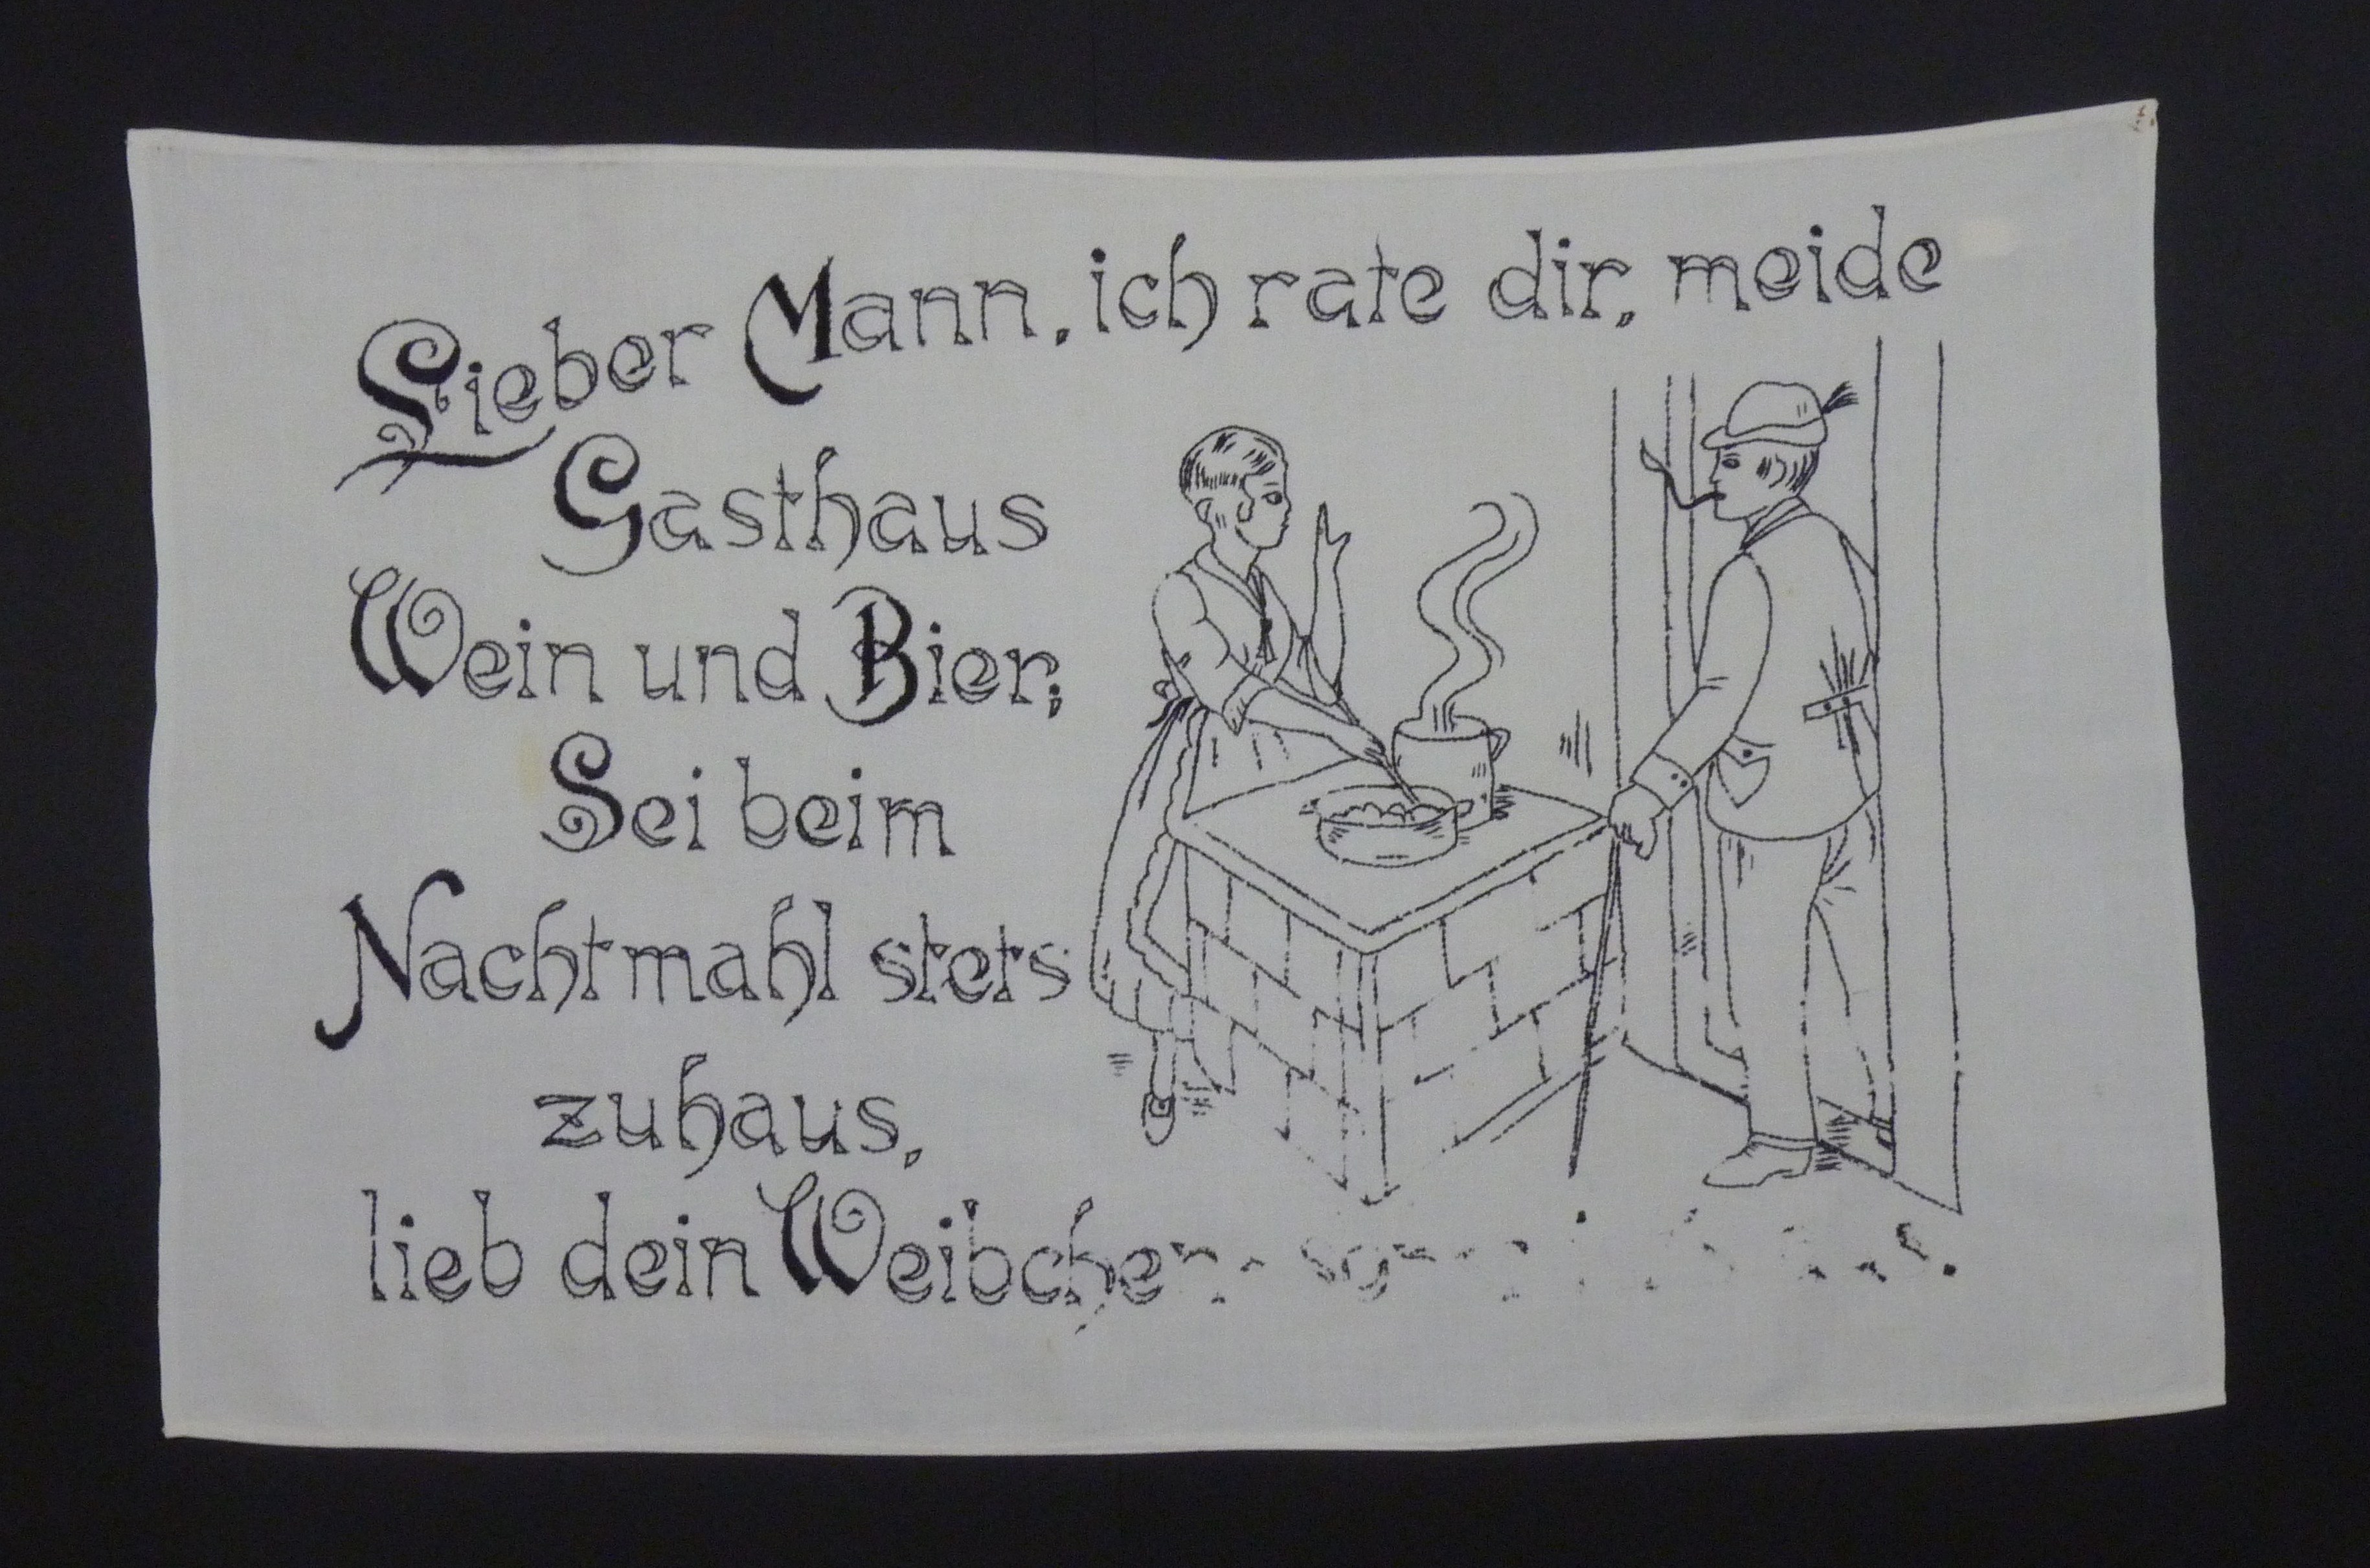 Lieber Mann, ich rate dir, meide
Gasthaus
Wein und Bier;
Sei beim
Nachtmahl stets
zuhaus,
lieb dein Weibchen